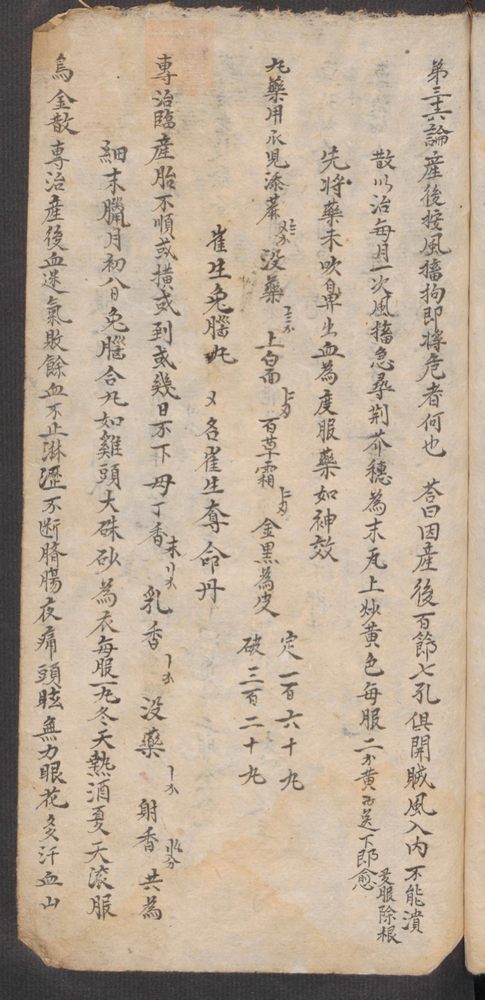 第三十六論産後按風搐拘即將危者何也　荅曰因産後百節七孔俱開賊風入内不能潰
散以治每月一次風搐急尋荆芥穗為末瓦上炒黄色每服二分黄酒送下即愈 多服除根
先將藥末吹鼻出血為度服藥如神效
九藥用 漆 没藥 上白面 百草霜 金黑為皮
定一百六十九
破三百二十九
崔生兔腦丸　又名崔生奪命丹
專治臨産胎不順或横或到或幾日不下母丁香末 乳香 没藥 射香 共為
細末臘月初八日兔腦合丸如雞頭大硃砂為衣每服一丸冬天熱酒夏天滚服
烏金散專治産後血迷氣敗餘血不止淋瀝不断臍腸夜痛頭眩無力眼花多汗血山